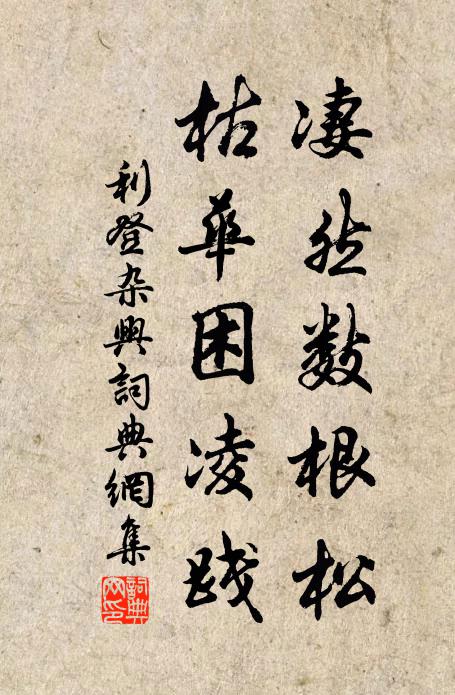 凄然数根松
枯華困凌践
利登杂興詞典網集
詞典網印